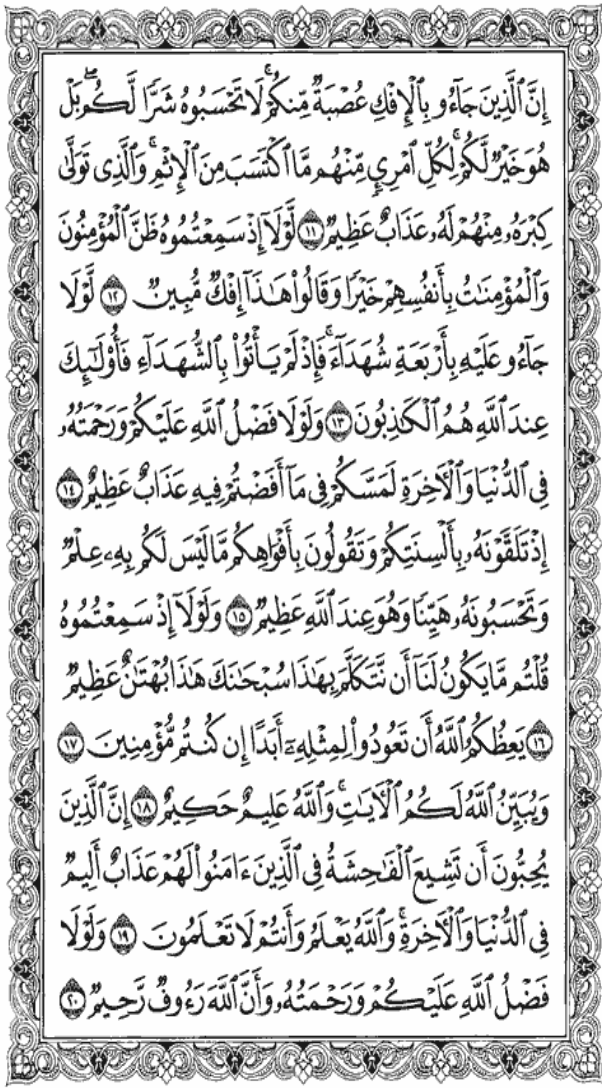 إِنَّ ٱلَّذِينَ جَآءُو بِٱلْإِفْكِ عُصْبَةٌ مِّنكُمْ ۚ لَا تَحْسَبُوهُ شَرًّا لَّكُم ۖ بَلْ
هُوَ خَيْرٌ لَّكُمْ ۚ لِكُلِّ ٱمْرِئٍ مِّنْهُم مَّا ٱكْتَسَبَ مِنَ ٱلْإِثْمِ ۚ وَٱلَّذِى تَوَلَّىٰ
كِبْرَهُۥ مِنْهُمْ لَهُۥ عَذَابٌ عَظِيمٌ ١١ لَّوْلَآ إِذْ سَمِعْتُمُوهُ ظَنَّ ٱلْمُؤْمِنُونَ
وَٱلْمُؤْمِنَٰتُ بِأَنفُسِهِمْ خَيْرًا وَقَالُوا۟ هَٰذَآ إِفْكٌ مُّبِينٌ ١٢ لَّوْلَا
جَآءُو عَلَيْهِ بِأَرْبَعَةِ شُهَدَآءَ ۚ فَإِذْ لَمْ يَأْتُوا۟ بِٱلشُّهَدَآءِ فَأُو۟لَٰٓئِكَ
عِندَ ٱللَّهِ هُمُ ٱلْكَٰذِبُونَ ١٣ وَلَوْلَا فَضْلُ ٱللَّهِ عَلَيْكُمْ وَرَحْمَتُهُۥ
فِى ٱلدُّنْيَا وَٱلْءَاخِرَةِ لَمَسَّكُمْ فِى مَآ أَفَضْتُمْ فِيهِ عَذَابٌ عَظِيمٌ ١٤
إِذْ تَلَقَّوْنَهُۥ بِأَلْسِنَتِكُمْ وَتَقُولُونَ بِأَفْوَاهِكُم مَّا لَيْسَ لَكُم بِهِۦ عِلْمٌ
وَتَحْسَبُونَهُۥ هَيِّنًا وَهُوَ عِندَ ٱللَّهِ عَظِيمٌ ١٥ وَلَوْلَآ إِذْ سَمِعْتُمُوهُ
قُلْتُم مَّا يَكُونُ لَنَآ أَن نَّتَكَلَّمَ بِهَٰذَا سُبْحَٰنَكَ هَٰذَا بُهْتَٰنٌ عَظِيمٌ
١٦ يَعِظُكُمُ ٱللَّهُ أَن تَعُودُوا۟ لِمِثْلِهِۦٓ أَبَدًا إِن كُنتُم مُّؤْمِنِينَ ١٧
وَيُبَيِّنُ ٱللَّهُ لَكُمُ ٱلْءَايَٰتِ ۚ وَٱللَّهُ عَلِيمٌ حَكِيمٌ ١٨ إِنَّ ٱلَّذِينَ
يُحِبُّونَ أَن تَشِيعَ ٱلْفَٰحِشَةُ فِى ٱلَّذِينَ ءَامَنُوا۟ لَهُمْ عَذَابٌ أَلِيمٌ
فِى ٱلدُّنْيَا وَٱلْءَاخِرَةِ ۚ وَٱللَّهُ يَعْلَمُ وَأَنتُمْ لَا تَعْلَمُونَ ١٩ وَلَوْلَا
فَضْلُ ٱللَّهِ عَلَيْكُمْ وَرَحْمَتُهُۥ وَأَنَّ ٱللَّهَ رَءُوفٌ رَّحِيمٌ ٢٠